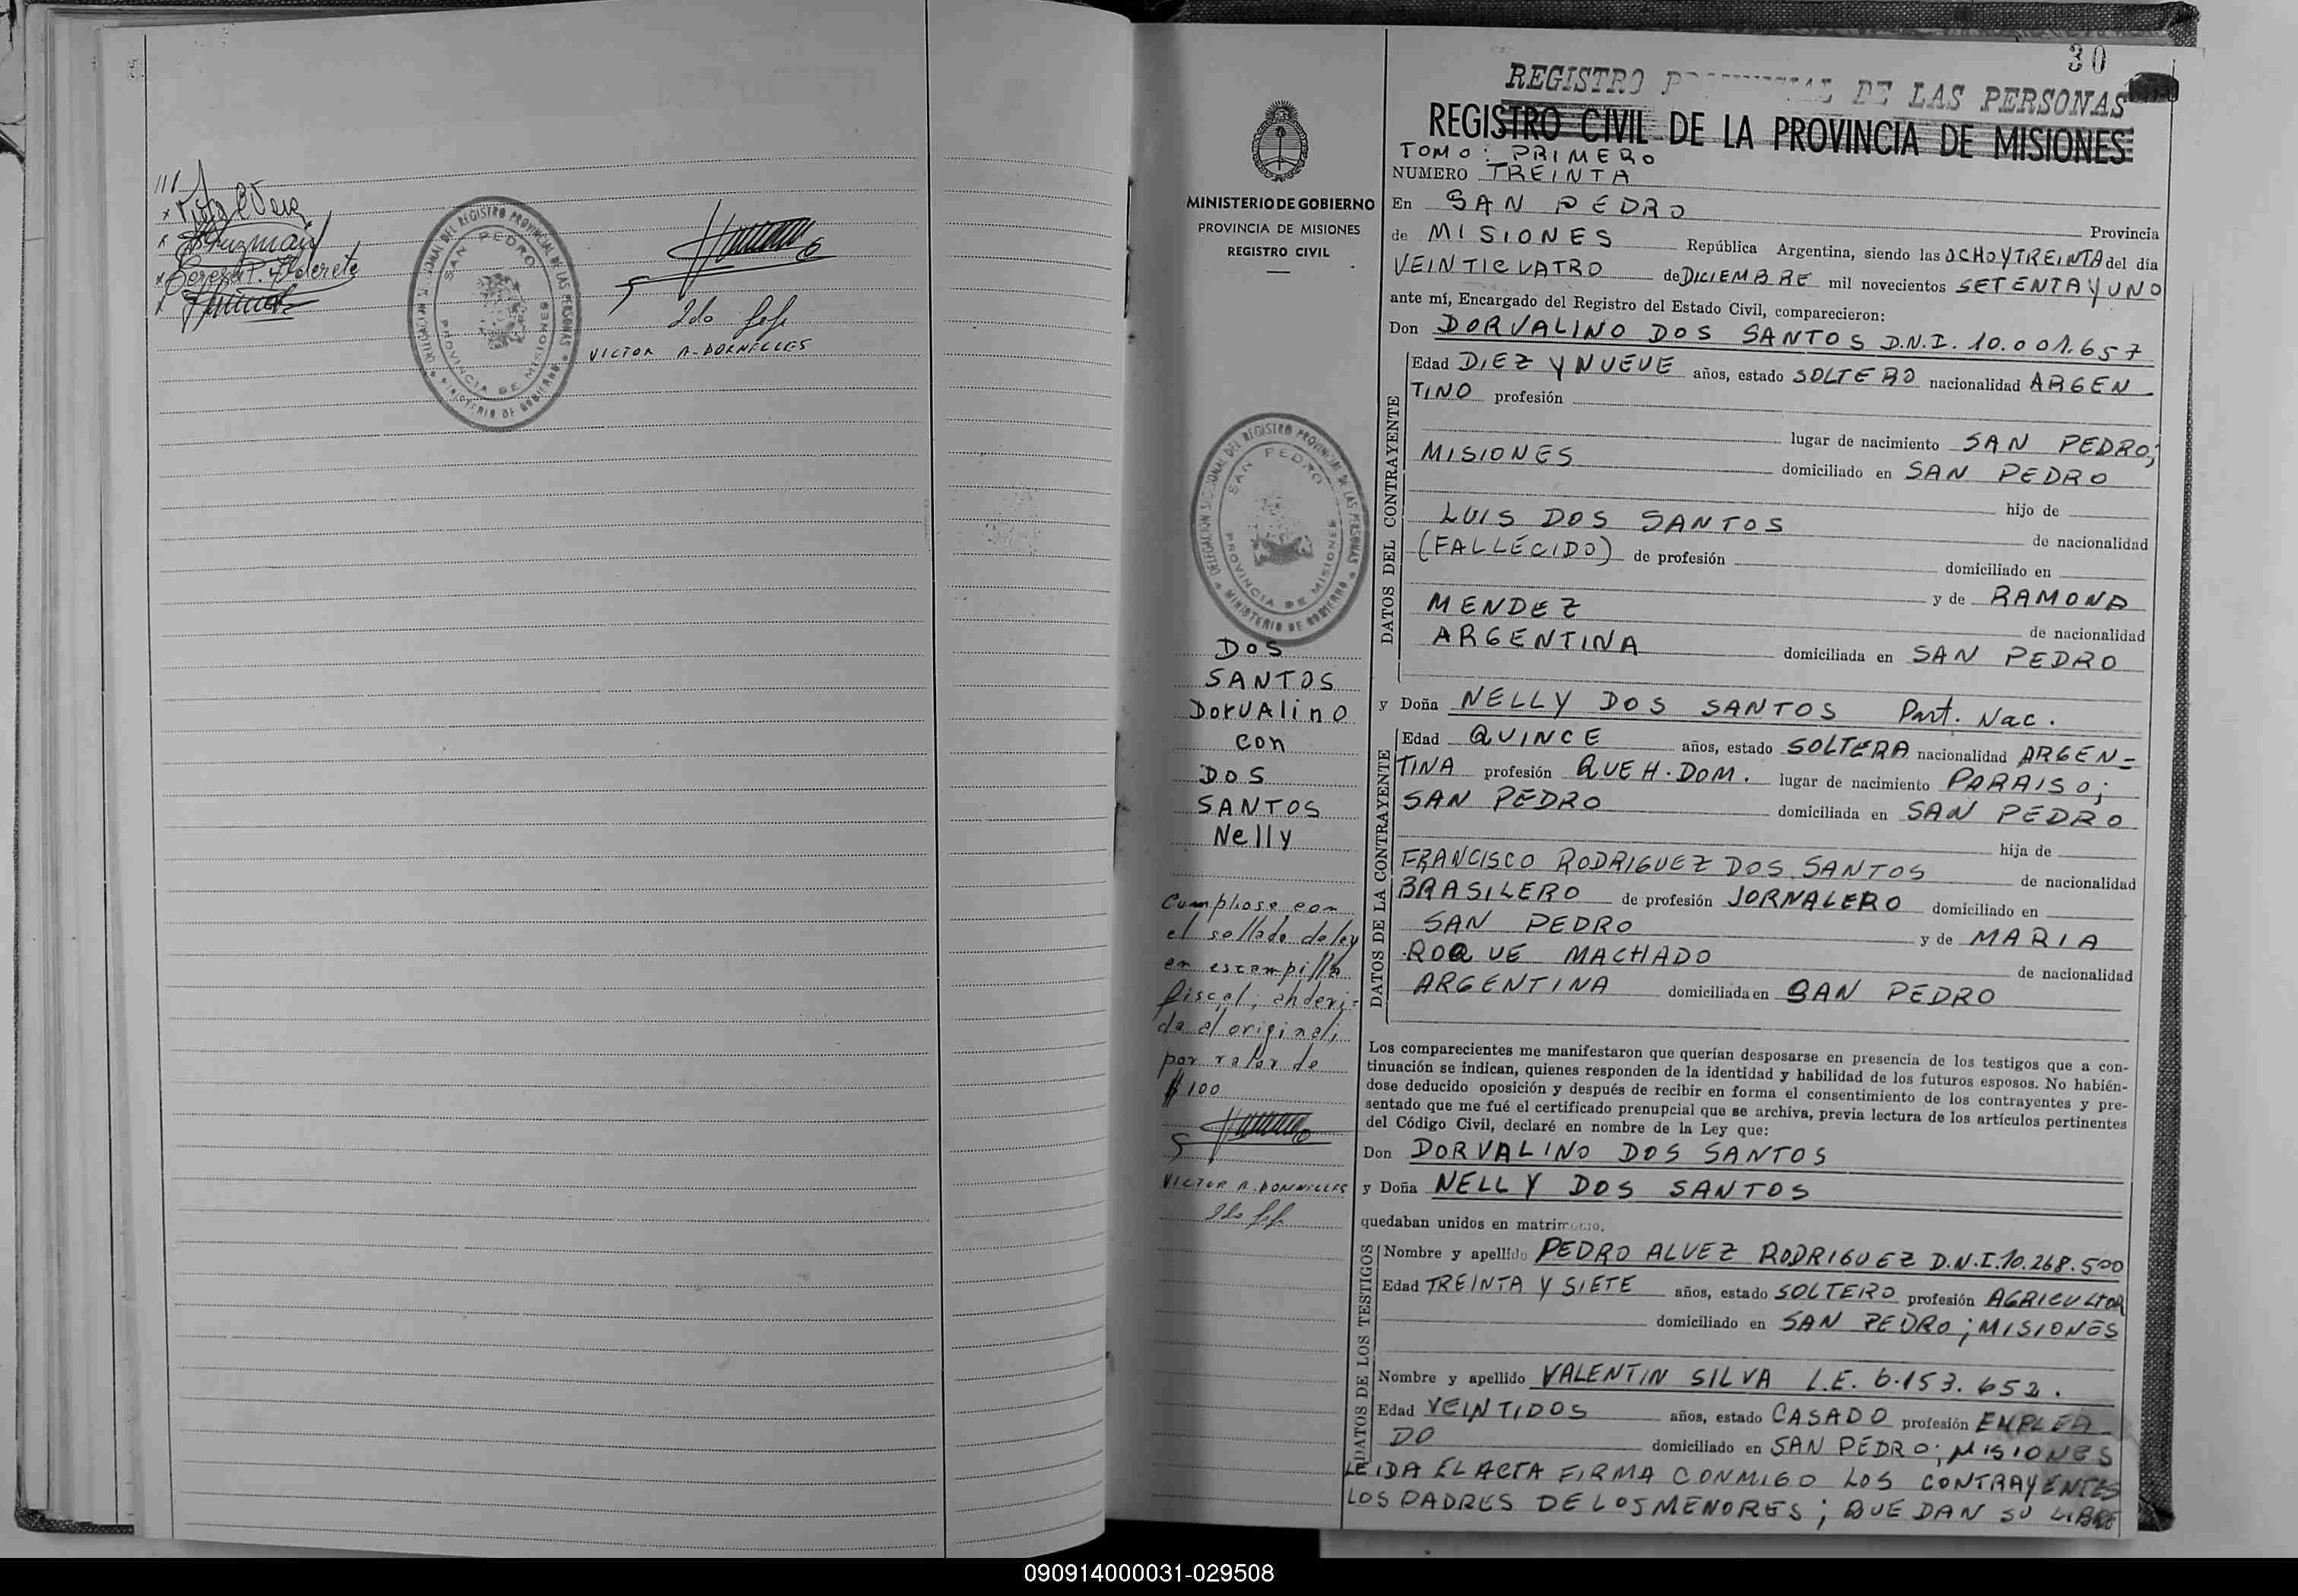 Teresa P. Alderete
DELEGACION SECCIONAL DEL REGISTRO PROVINCIAL DE LAS PERSONAS
SAN PEDRO
PROVINCIA DE MISIONES
MINISTERIO DE GOBIERNO
2do Jefe
VICTOR A. DORNELLES
30
REGISTRO PROVINCIAL DE LAS PERSONAS
REGISTRO CIVIL DE LA PROVINCIA DE MISIONES
MINISTERIO DE GOBIERNO
PROVINCIA DE MISIONES
REGISTRO CIVIL
DELEGACION SECCIONAL DEL REGISTRO PROVINCIAL DE LAS PERSONAS
SAN PEDRO
PROVINCIA DE MISIONES
MINISTERIO DE GOBIERNO
DOS
SANTOS
DorVAlino
con
DOS
SANTOS
Nelly
Cumplose con
el sellado de ley
en estampilla
fiscal; aheri=
da al original;
por valor de
$ 100
VICTOR A. DORNELLES
2do Jefe
TOMO: PRIMERO
NUMERO TREINTA
En SAN PEDRO Provincia
de MISIONES República Argentina, siendo las OCHO Y TREINTA del día
VEINTICUATRO de DICIEMBRE mil novecientos SETENTA Y UNO
ante mí, Encargado del Registro del Estado Civil, comparecieron:
Don DORVALINO DOS SANTOS D.N.I. 10.001.657
DATOS DEL CONTRAYENTE
Edad DIEZ Y NUEVE años, estado SOLTERO nacionalidad ARGEN
TINO profesión
lugar de nacimiento SAN PEDRO;
MISIONES domiciliado en SAN PEDRO
hijo de
LUIS DOS SANTOS de nacionalidad
(FALLECIDO) de profesión domiciliado en
y de RAMONA
MENDEZ de nacionalidad
ARGENTINA domiciliada en SAN PEDRO
y Doña NELLY DOS SANTOS Part. Nac.
DATOS DE LA CONTRAYENTE
Edad QUINCE años, estado SOLTERA nacionalidad ARGEN=
TINA profesión QUEH. DOM. lugar de nacimiento PARAISO;
SAN PEDRO domiciliada en SAN PEDRO
hija de
FRANCISCO RODRIGUEZ DOS SANTOS de nacionalidad
BRASILERO de profesión JORNALERO domiciliado en
SAN PEDRO y de MARIA
ROQUE MACHADO de nacionalidad
ARGENTINA domiciliada en SAN PEDRO
Los comparecientes me manifestaron que querían desposarse en presencia de los testigos que a con-
tinuación se indican, quienes responden de la identidad y habilidad de los futuros esposos. No habién-
dose deducido oposición y después de recibir en forma el consentimiento de los contrayentes y pre-
sentado que me fué el certificado prenupcial que se archiva, previa lectura de los artículos pertinentes
del Código Civil, declaré en nombre de la Ley que:
Don DORVALINO DOS SANTOS
y Doña NELLY DOS SANTOS
quedaban unidos en matrimonio.
DATOS DE LOS TESTIGOS
Nombre y apellido PEDRO ALVEZ RODRIGUEZ D.N.I. 10.268.500
Edad TREINTA Y SIETE años, estado SOLTERO profesión AGRICULTOR
domiciliado en SAN PEDRO; MISIONES
Nombre y apellido VALENTIN SILVA L.E. 6.153.652.
Edad VEINTIDOS años, estado CASADO profesión EMPLEA
DO domiciliado en SAN PEDRO; MISIONES
LEIDA EL ACTA FIRMA CONMIGO LOS CONTRAYENTES
LOS PADRES DE LOS MENORES; QUE DAN SU LIBRE
090914000031-029508